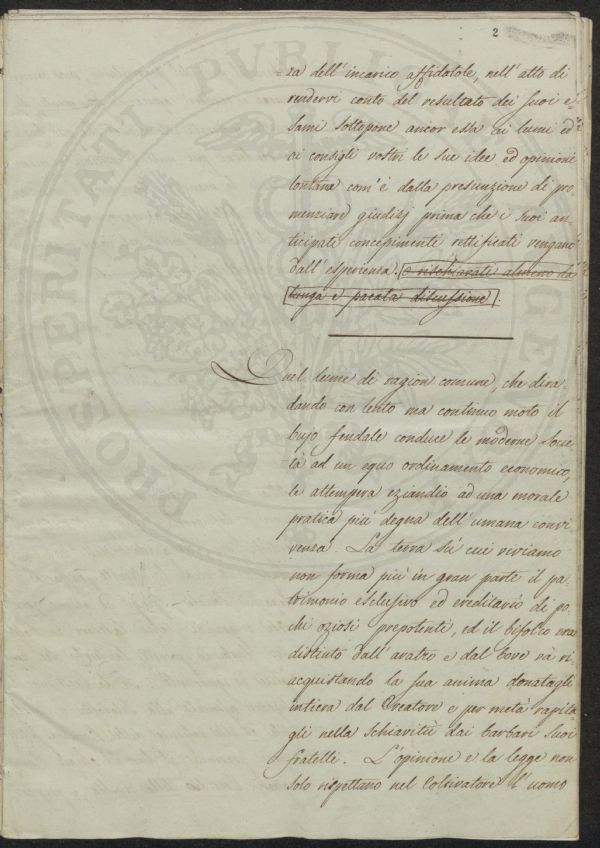 2
za dell'incarico affidatole, nell'atto di
rendervi conto del resultato dei suoi e-
sami sottopone ancor essa ai lumi ed
ai consigli vostri le sue idee ed opinioni
lontana com'è dalla presunzione di pro-
nunziare giudizj prima che i suoi an-
ticipati concepimenti rettificati vengano
dall'esperienza. o rischiarati almeno da
lunga e pacata discussione.
Quel lume di ragion comune, che dira-
dando con lento ma continuo moto il
bujo feudale conduce le moderne socie-
tà ad un equo ordinamento economico,
le attempera eziandio ad una morale
pratica più degna dell'umana convi-
venza. La terra su cui viviamo
non forma più in gran parte il pa-
trimonio esclusivo ed ereditario di po-
chi oziosi prepotenti, ed il bifolco ora
distinto dall'aratro e dal bove và ri-
acquistando la sua anima donatagli
intiera dal Creatore e per metà rapita-
gli nella schiavitù dai barbari suoi
fratelli. L'opinione e la legge non
solo rispettano nel Coltivatore l'uomo
PROSPERITATI PVBLICAE